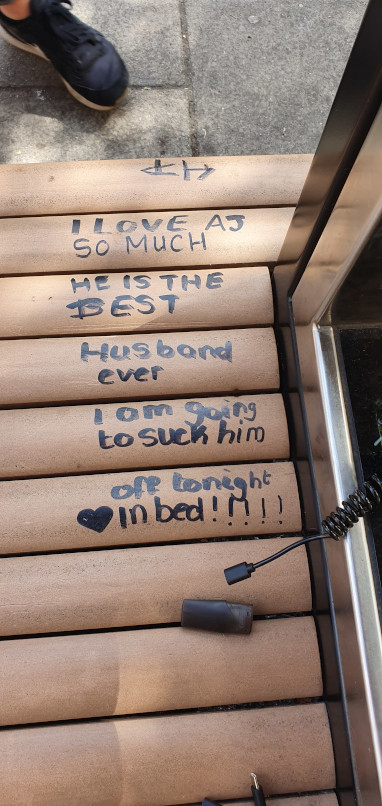 I LOVE AJ
SO MUCH
HE IS THE
BEST
Husband
ever
I am going
to suck him
off tonight
♥ in bed!!!!!